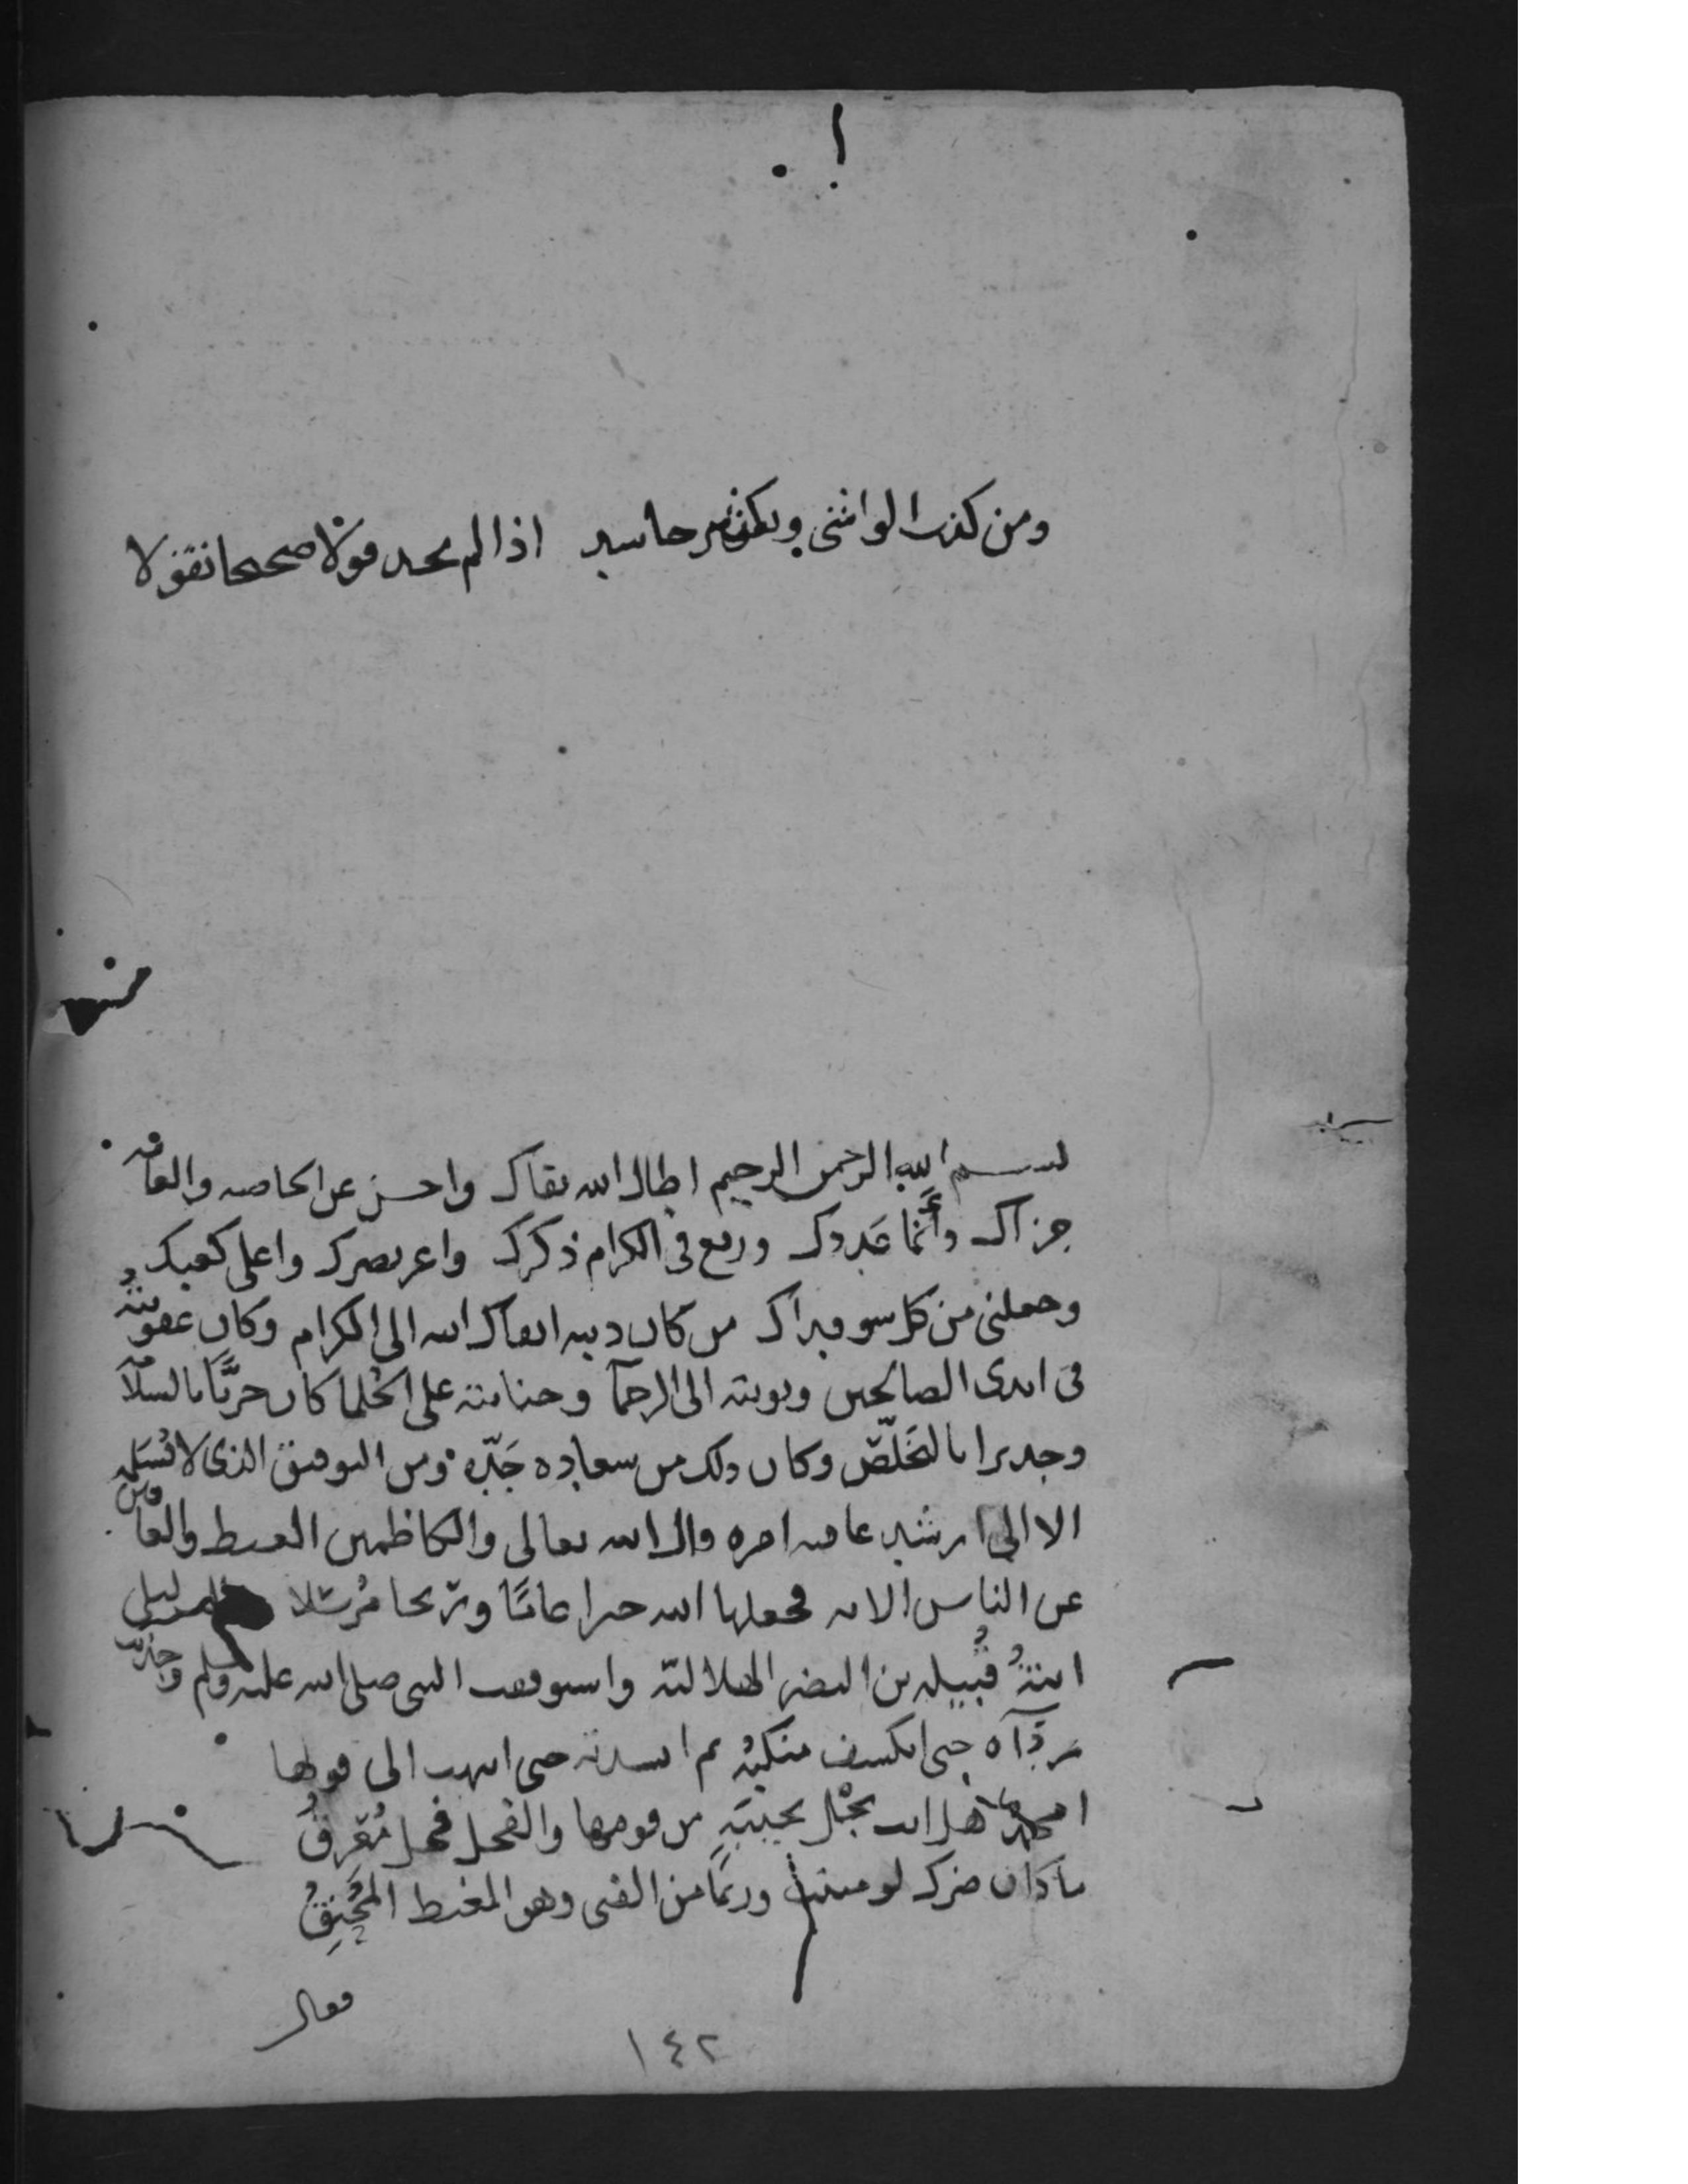 ومن كذب الواشي ويكثر حاسد اذا لم يجد قولا صحيحا تقولا
بسم الله الرحمن الرحيم اطال الله بقاك واحسن عن الخاصه والعامه
جزاك وأنما عددك ورفع في الكرام ذكرك واعز نصرك واعلى كعبك
وجعلني من كل سو فداك من كان ذنبه ابقاك الله الى الكرام وكان عقوبته
في ايدى الصالحين وتوبته الى الرحما وجنايته على الحلما كان حريا بالسلامه
وجديرا بالتخلص وكان ذلك من سعاده جده ومن التوفيق الذى لا
الا الى ارشد عاقبه امره قال الله تعالى والكاظمين الغيط والعافين
عن الناس الايه فجعلها الله خبرا عاما مرسلا ليلى
ابنة قبيله بن النضر الهلاليه واستوقفت النبى صلى الله عليه وسلم وجذبت
رداه حتى انكشف منكبه ثم انشدته حتى انتهت الى قولها
امحمد ها انت نجل نجيبة من قومها والفحل فحل معرق
ما كان ضرك لو مننت وربما من الفتى وهو المغيط المحنق
فقال
١٤٢